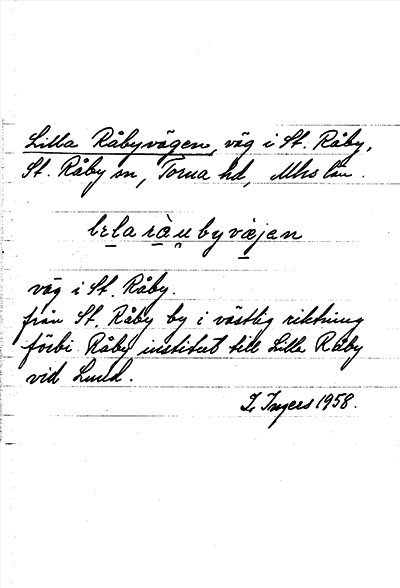 Lilla Råbyvägen, väg i St. Råby,
St. Råby sn, Torna hd, Mlhs län.
lela ràu by väjen
väg i St. Råby.
från St. Råby by i västlig riktning
förbi Råby institut till Lilla Råby
vid Lund.
I. Ingers 1958.